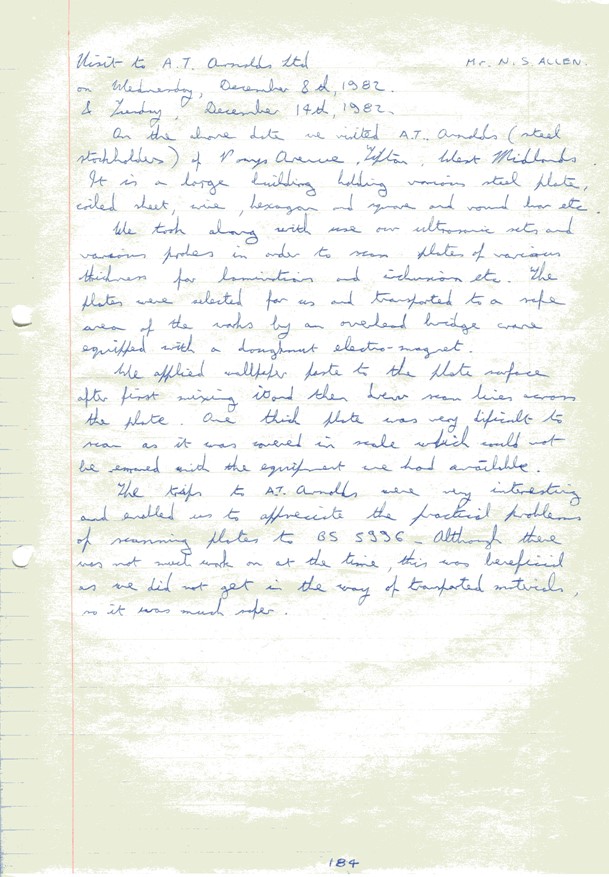 Visit to A.T. Arnolds Ltd Mr. N. S. ALLEN.
on Wednesday, December 8th, 1982.
& Tuesday, December 14th, 1982.
On the above date we visited A.T. Arnolds (steel
stockholders) of Avenue, Tipton, West Midlands.
It is a large building holding various steel plate,
coiled sheet, wire, hexagon and square and round bar etc.
We took along with use our ultrasonic sets and
various probes in order to scan plates of various
thickness for laminations and inclusion etc. The
plates were selected for us and transported to a safe
area of the works by an overhead bridge crane
equipped with a doughnut electro-magnet.
We applied wallpaper paste to the plate surface
after first mixing it and then drew scan lines across
the plate. One thick plate was very dificult to
scan as it was covered in scale which could not
be emoved with the equipment we had available.
The trips to A.T. Arnolds were very interesting
and enabled us to appreciate the practical problems
of scanning plates to BS 5996 - Although there
was not much work on at the time, this was beneficial
as we did not get in the way of transported materials,
so it was much safer.
184